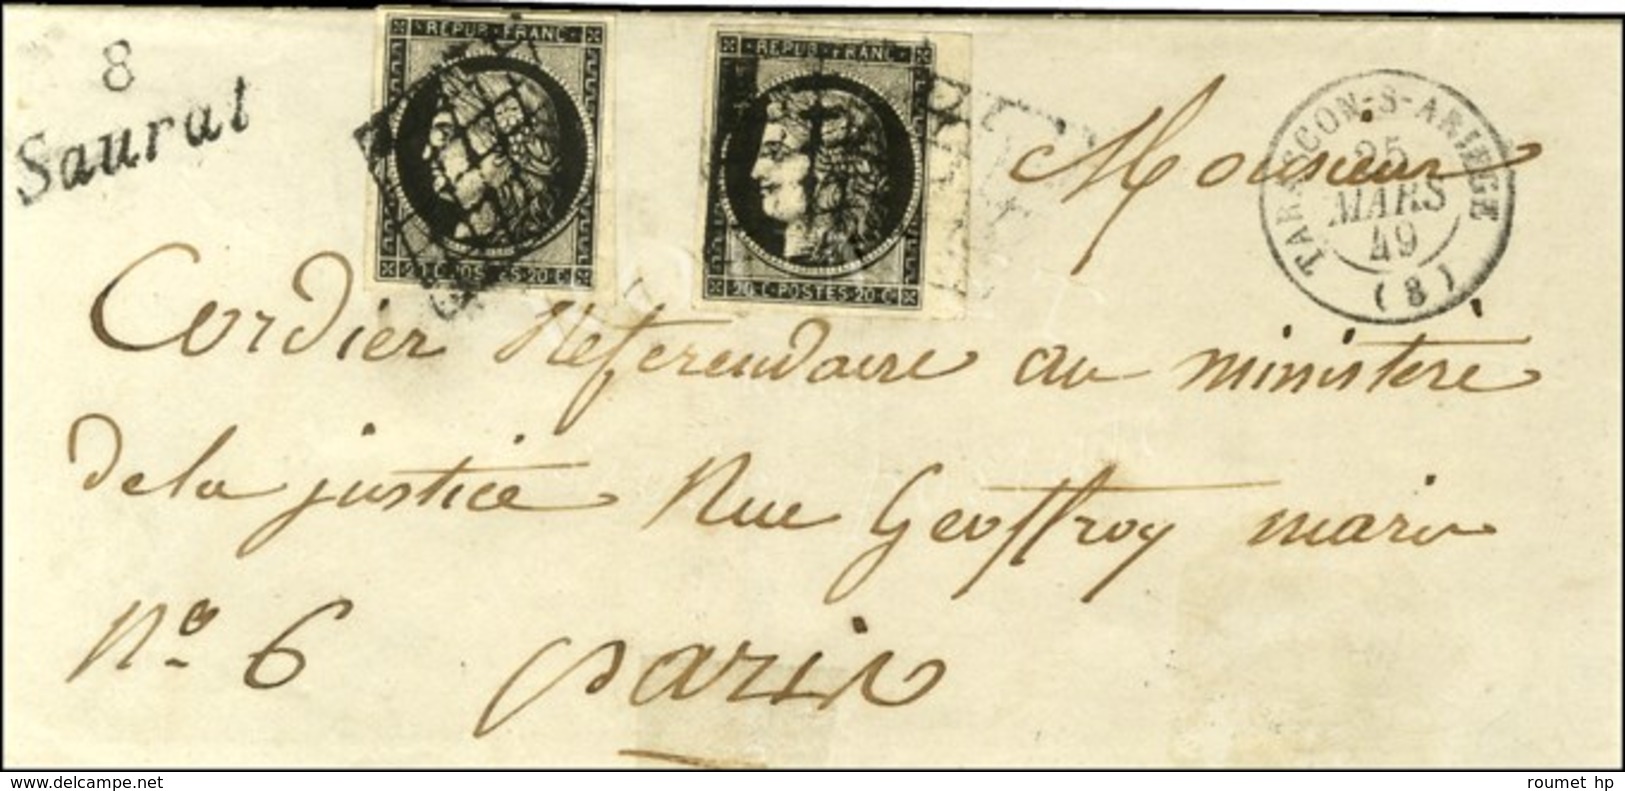 8
Saurat
REPUB·FRANC
20·C·POSTES·20·C
REPUB·FRANC
20·C·POSTES·20·C
TARASCON-S-ARIEGE
25
MARS
49
(8)
Monsieur
Cordier Referendaire au ministere
de la justice Rue Geoffroy marie
No. 6 paris
www.delcampe.net
roumet hp